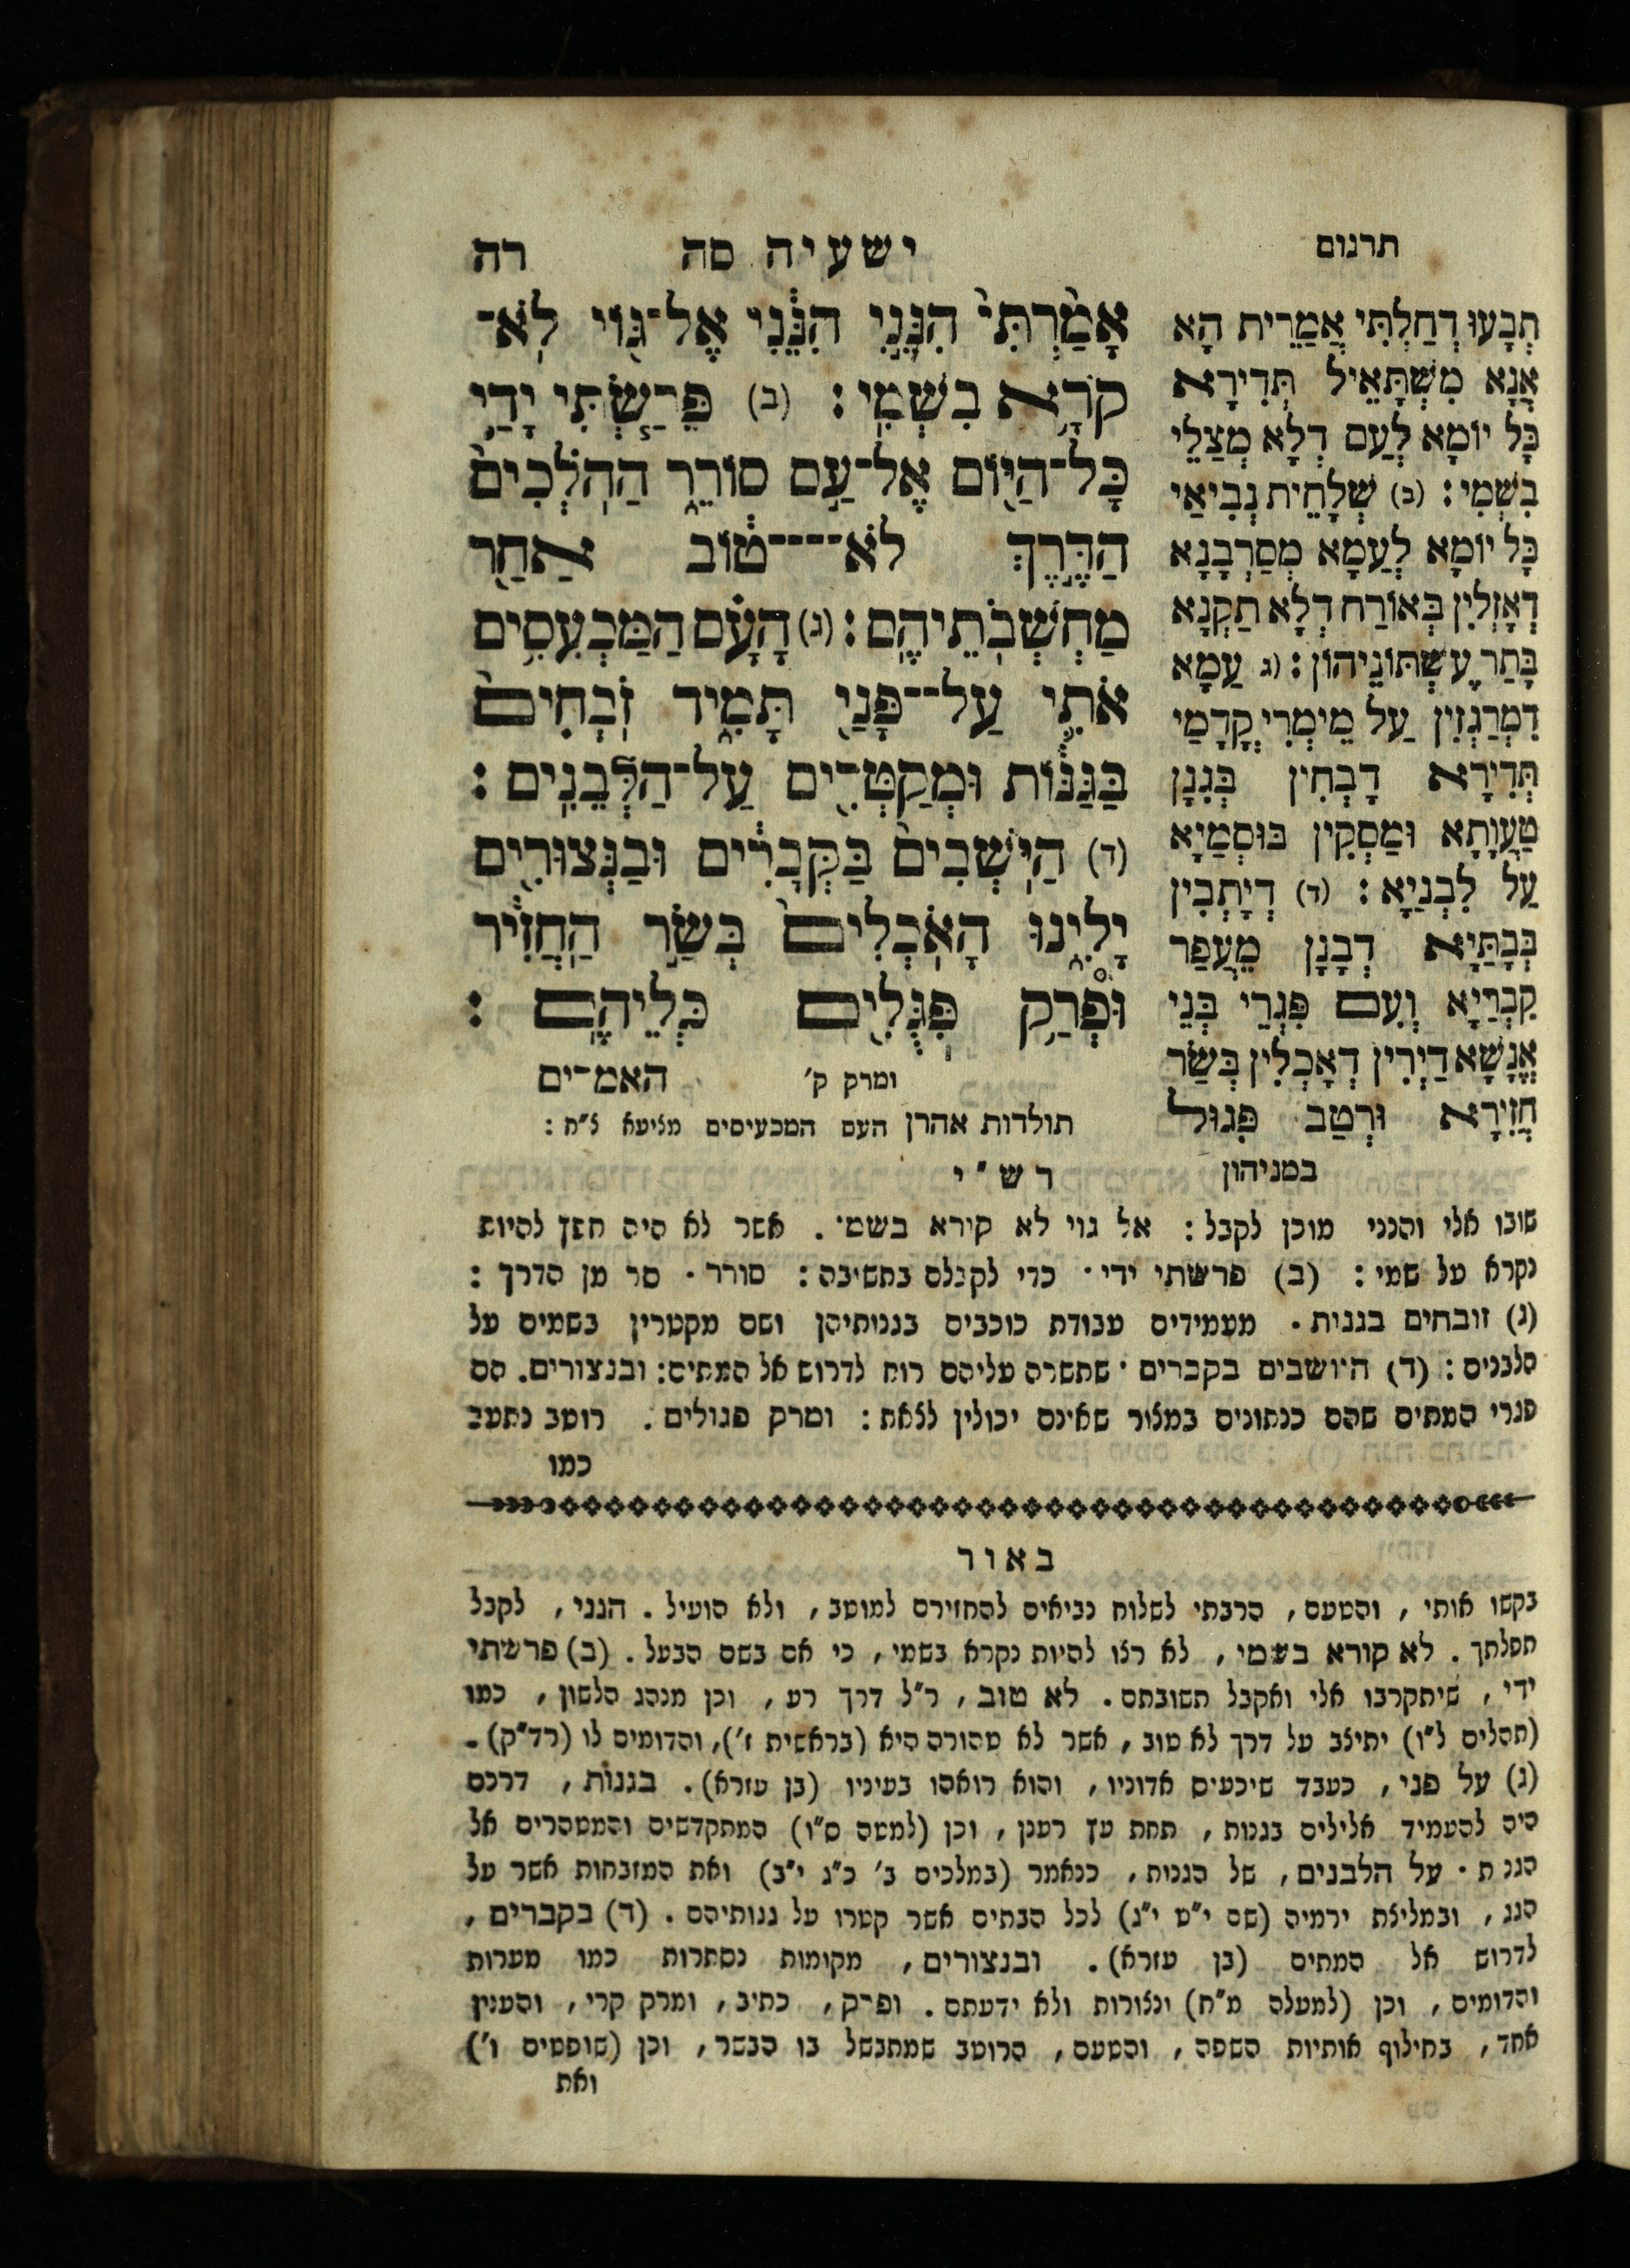 תרגום
ישעיה סה רה
אָמַ֨רְתִּי֙ הִנֵּ֣נִי הִנֵּ֔נִי אֶל־גּ֖וֹי לֹֽא־
קֹרָ֥א בִשְׁמִֽי: (ב) פֵּרַ֧שְׂתִּי יָדַ֛י
כָּל־הַיּ֖וֹם אֶל־עַ֣ם סוֹרֵ֑ר הַהֹלְכִים֙
הַדֶּ֣רֶךְ לֹא־טּ֔וֹב אַחַ֖ר
מַחְשְׁבֹֽתֵיהֶֽם: (ג) הָעָ֗ם הַמַּכְעִסִ֥ים
אֹתִ֛י עַל־פָּנַ֖י תָּמִ֑יד זֹֽבְחִים֙
בַּגַּנּ֔וֹת וּמְקַטְּרִ֖ים עַל־הַלְּבֵנִֽים:
(ד) הַיֹּֽשְׁבִים֙ בַּקְּבָרִ֔ים וּבַנְּצוּרִ֖ים
יָלִ֑ינוּ הָאֹֽכְלִים֙ בְּשַׂ֣ר הַֽחֲזִ֔יר
וּפְרַ֥ק פִּגֻּלִ֖ים כְּלֵיהֶֽם:
ומרק ק׳ האמ־ים
תולדות אהרן העם המכעיסים מליעא ל״ח:
תְבָעוּ דְחַלְתִּי אֲמַרֵית הָא
אֲנָא מִשְׁתָּאֵיל תְּדִירָא
כָּל יוֹמָא לְעַם דְלָא מְצַלֵי
בִשְׁמִי: (ב) שְׁלָחֵית נְבִיאַי
כָּל יוֹמָא לְעַמָא מְסַרְבָנָא
דְאָזְלִין בְּאוֹרַח דְלָא תַקְנָא
בָּתַר עֶשְׁתּוֹנֵיהוֹן: (ג עַמָא
דִמְרַגְזִין עַל מֵימְרִי קֳדָמַי
תְּדִירָא דָבְחִין בְּגִנָן
טַעֲוָתָא וּמַסְקִין בּוּסְמַיָא
עַל לִבְנַיָא: (ד) דְיָתְבִין
בְּבָתַּיָא דְבָנָן מֵעֲפַר
קִבְרַיָא וְעִם פִּגְרֵי בְּנֵי
אֱנָשָׁא דַיְרִין דְאָכְלִין בְּשַׂר
חֲזִירָא וּרְטַב פִּגוּל
במניהון
רש״י
שובו אלי והנני מוכן לקבל: אל גוי לא קורא בשמי. אשר לא היה חפץ להיות
נקרא על שמי: (ב) פרשתי ידי. כדי לקבלם בתשיבה: סורר. סר מן הדרך:
(ג) זובחים בגנות. מעמידים עבודת כוכבים בגנותיהן ושם מקטרין בשמים על
הלבנים: (ד) היושבים בקברים. שתשרה עליהם רוח לדרוש אל המתים: ובנצורים. הם
פגרי המתים שהם כנתונים במצור שאינם יכולין לצאת: ומרק פגולים. רוטב נתעב
כמו
באור
בקשו אותי, והטעם, הרבתי לשלוח נביאים להחזירם למוטב, ולא הועיל. הנני, לקבל
תפלתך. לא קורא בשמי, לא רצו להיות נקרא בשמי, כי אם בשם הבעל. (ב) פרשתי
ידי, שיתקרבו אלי ואקבל תשובתם. לא טוב, ר״ל דרך רע, וכן מנהג הלשון, כמו
(תהלים ל״ו) יתיצב על דרך לא טוב, אשר לא טהורה היא (בראשית ז׳), והדומים לו (רד״ק).
(ג) על פני, כעבד שיכעיס אדוניו, והוא רואהו בעיניו (בן עזרא). בגנות, דרכם
היה להעמיד אלילים בגנות, תחת עץ רענן, וכן (למטה ס״ו) המתקדשים והמטהרים אל
הגנ ת. על הלבנים, של הגגות, כנאמר (במלכים ב׳ כ״ג י״ב) ואת המזבחות אשר על
הגג, ובמליצת ירמיה (שם י״ט י״ג) לכל הבתים אשר קטרו על גגותיהם. (ד) בקברים,
לדרוש אל המתים (בן עזרא). ובנצורים, מקומות נסתרות כמו מערות
והדומים, וכן (למעלה מ״ח) ונצורות ולא ידעתם. ופרק, כתיב, ומרק קרי, והענין
אחד, בחילוף אותיות השפה, והטעם, הרוטב שמתבשל בו הבשר, וכן (שופטים ו׳)
ואת